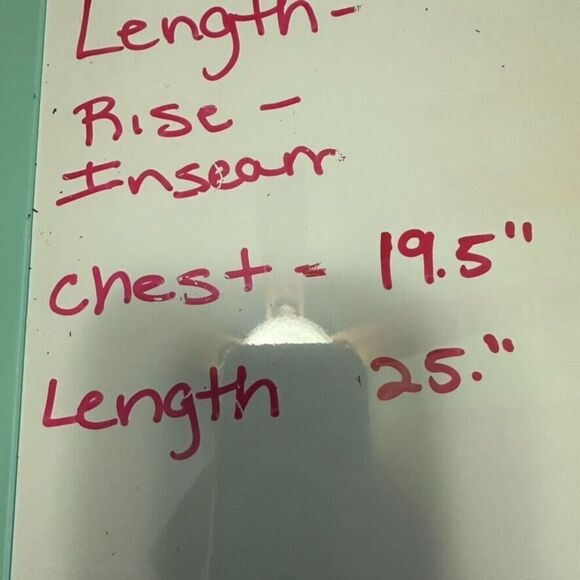 Length -
Rise -
Inseam
Chest - 19.5"
Length 25."